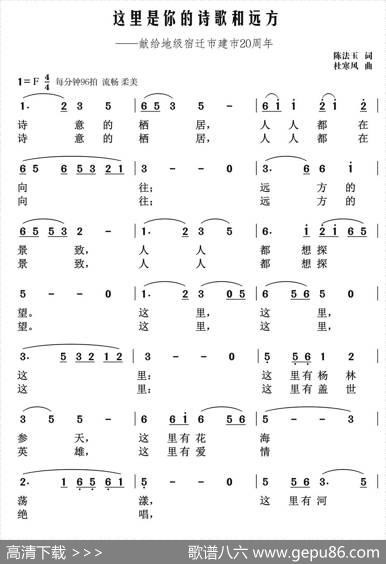 这里是你的诗歌和远方
——献给地级宿迁市建市20周年
陈法玉 词
杜寒风 曲
1=F 4/4 每分钟96拍 流畅 柔美
1. 2 3 5 | 6 5 3 5 - | 6 i i 2 i |
诗 意的 栖 居, 人 人 都 在
诗 意的 栖 居, 人 人 都 在
6 5 6 5 3 2 1 2 | 3 - - 0 | 3. 5 6 5 |
向 往; 远 方 的
向 往; 远 方 的
6. 5 3 2 3 0 | 1. 2 3 5 | 6. i 2 i 6 5 |
景 致, 人 人 都 想 探
景 致, 人 人 都 想 探
5 - - 0 | 1. 2 3 0 5 | 6 5 6 5 0 |
望。 这 里, 这 里,
望。 这 里, 这 里,
3. 5 3 2 1 2 | 3 - - 0 | 5 5 6 1 2 |
这 里: 这 里 有 杨 林
这 里: 这 里 有 盖 世
3 5 5 - | 6 6 i 6 5 6 | 3 - - 0 |
参 天, 这 里 有 花 海
英 雄, 这 里 有 爱 情
2. 1 6 5 6 | 1 - - 0 | 5 5 6 3. 5 |
荡 漾, 这 里 有 河
绝 唱,
高清下载 >>> 歌谱八六 www.gepu86.com